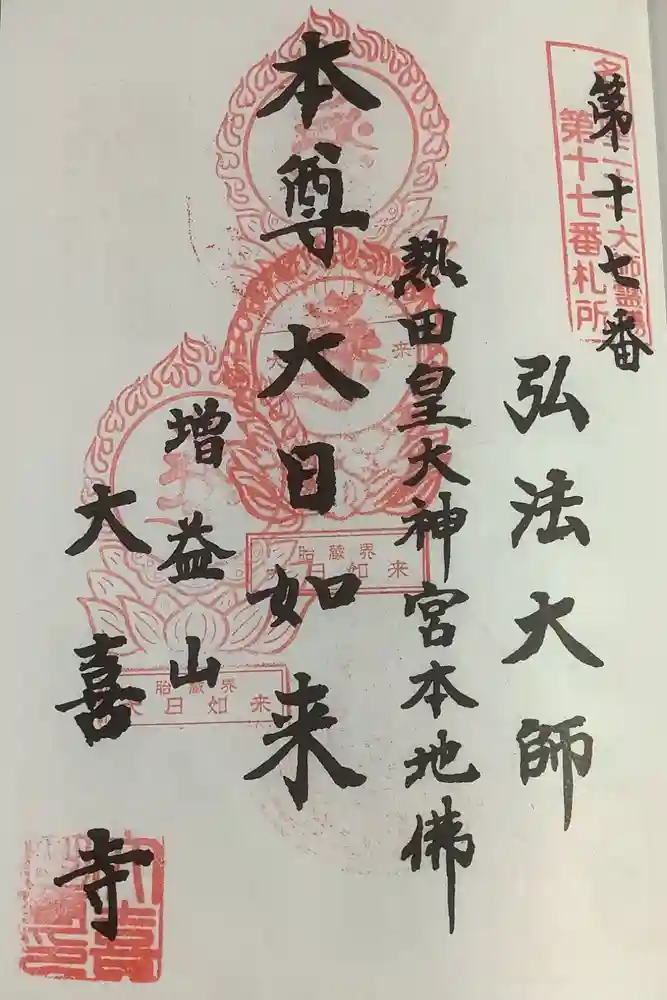 第十七番
第十七番札所
弘法大師
熱田皇大神宮本地佛
本尊大日如来
胎蔵界
大日如来
増益山
胎蔵界
大日如来
大喜寺